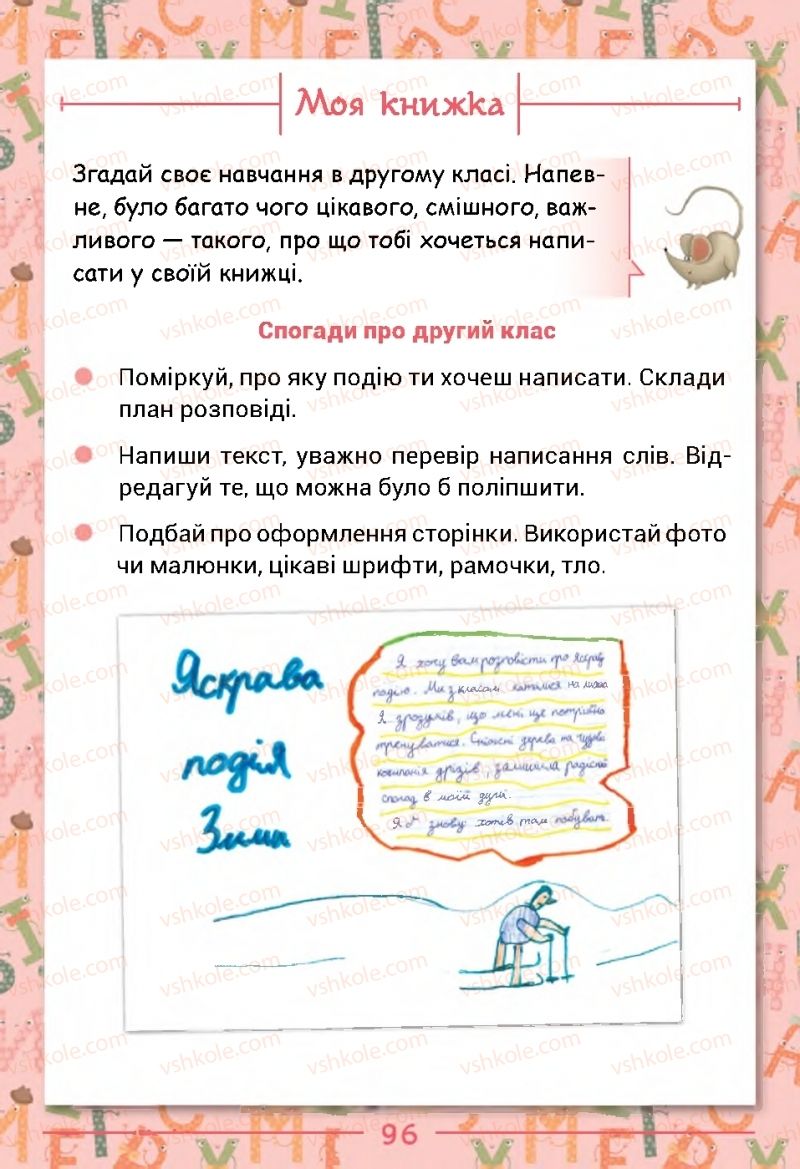 Моя книжка
Згадай своє навчання в другому класі. Напев-
не, було багато чого цікавого, смішного, важ-
ливого — такого, про що тобі хочеться напи-
сати у своїй книжці.
Спогади про другий клас
Поміркуй, про яку подію ти хочеш написати. Склади
план розповіді.
Напиши текст, уважно перевір написання слів. Від-
редагуй те, що можна було б поліпшити.
Подбай про оформлення сторінки. Використай фото
чи малюнки, цікаві шрифти, рамочки, тло.
Яскрава
подія
Зима
Я хочу вам розповісти про яскраву
подію. Ми з класом катались на лижах
Я зрозумів, що мені ще потрібно
тренуватися. Сніжні дерева та чудова
компанія друзів, залишила радісні
спогад в моїй душі.
Я б знову хотів там побувать.
96
vshkole.com